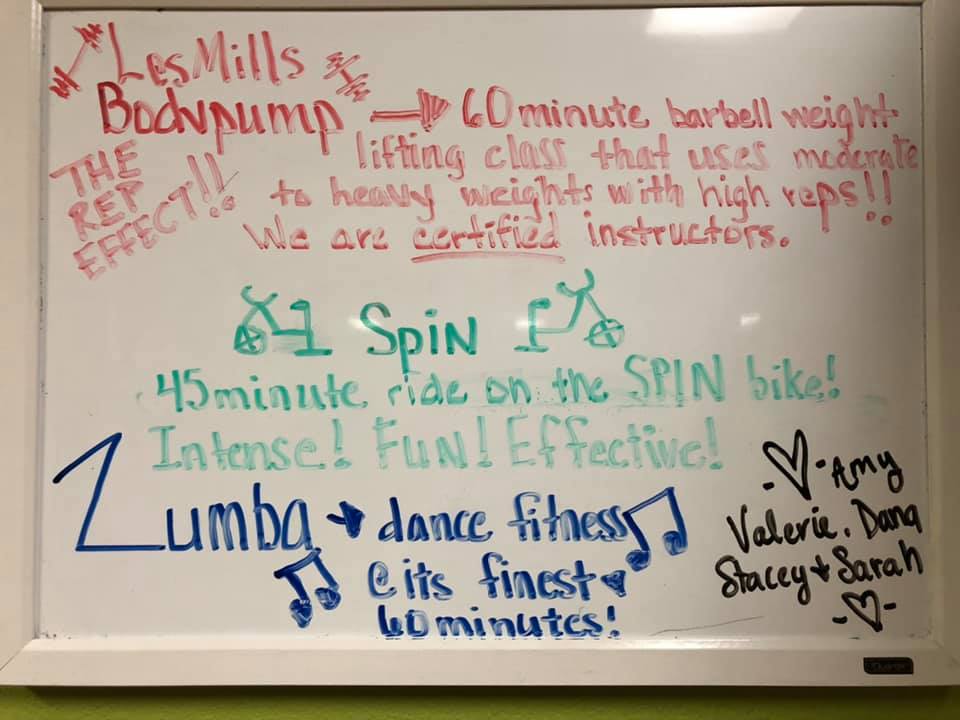 LesMills
Bodypump → 60 minute barbell weight
lifting class that uses moderate
to heavy weights with high reps!!
We are certified instructors.
THE
REP
EFFECT!!
Spin
45 minute ride on the SPIN bike!
Intense! Fun! Effective!
Zumba → dance fitness
@ its finest
60 minutes!
- Amy
Valerie, Dana
Stacey + Sarah
Quartet